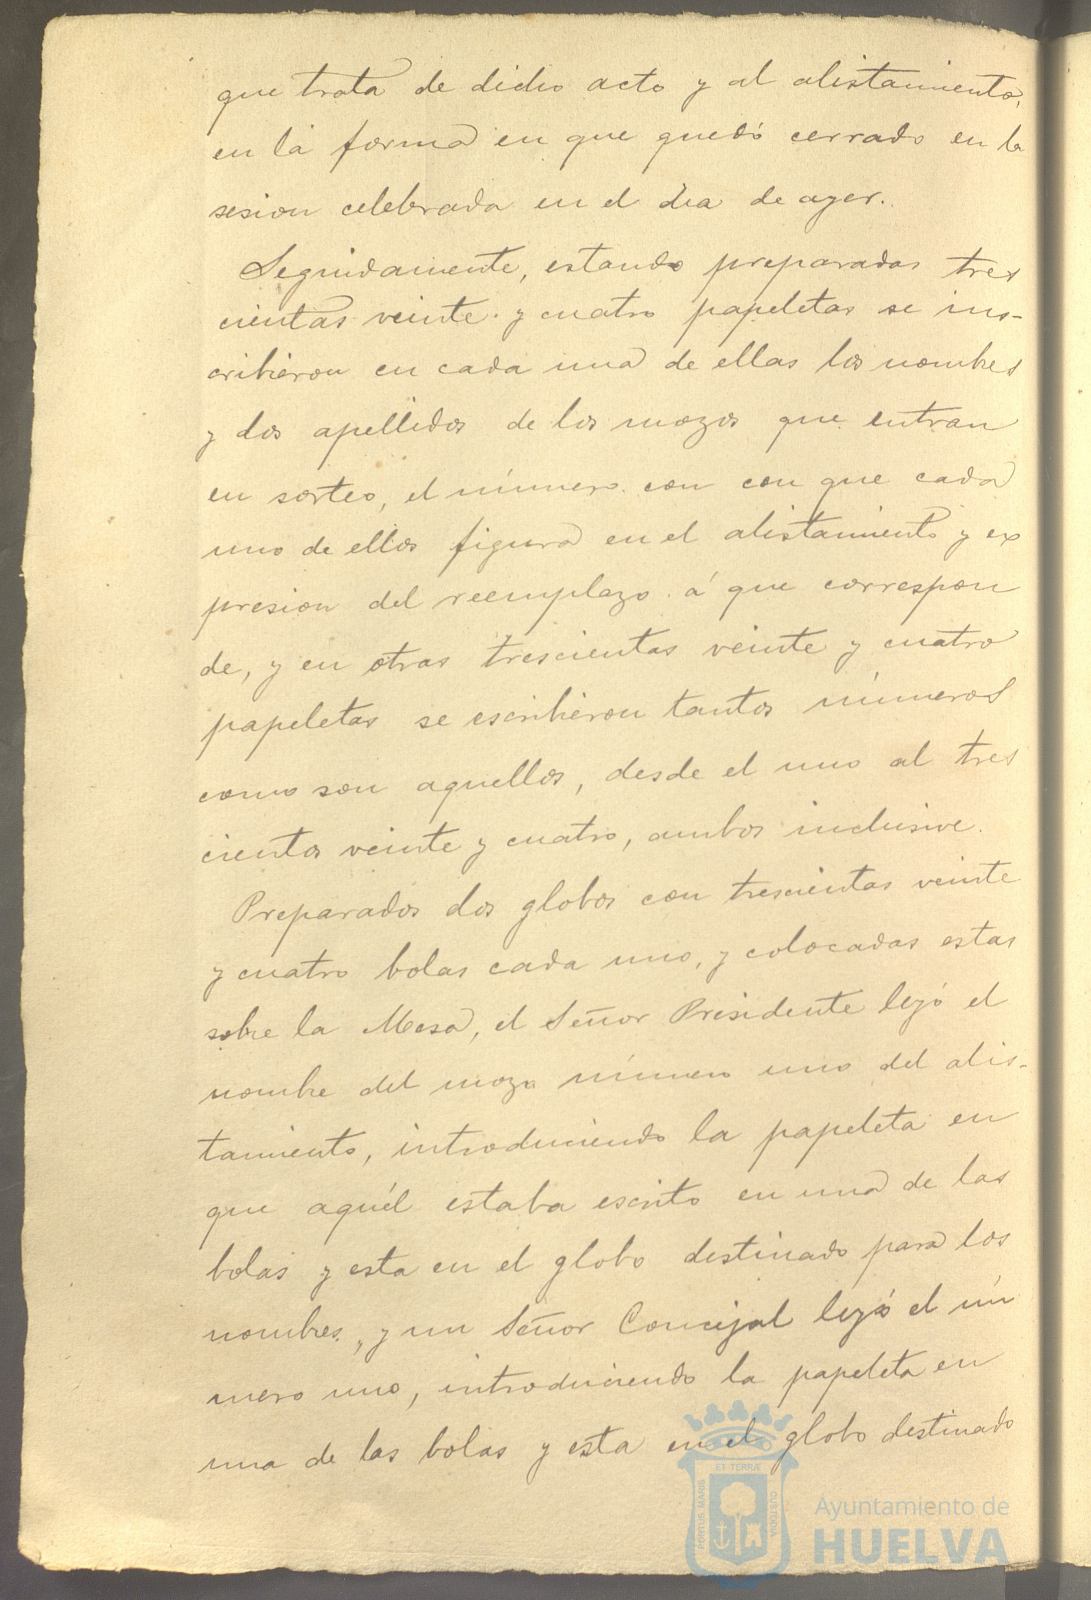 que trata de dicho acto y al alistamiento,
en la forma en que quedó cerrado en la
sesion celebrada en el dia de ayer.
Seguidamente, estando preparadas tres
cientas veinte y cuatro papeletas se ins-
cribieron en cada una de ellas los nombres
y dos apellidos de los mozos que entran
en sorteo, el número con con que cada
uno de ellos figura en el alistamiento y ex
presion del reemplazo á que correspon
de, y en otras trescientas veinte y cuatro
papeletas se escribieron tantos números
como son aquellos, desde el uno al tres
cientos veinte y cuatro, ambos inclusive.
Preparados dos globos con trescientas veinte
y cuatro bolas cada uno, y colocadas estas
sobre la Mesa, el Señor Presidente leyó el
nombre del mozo número uno del alis-
tamiento, introduciendo la papeleta en
que aquél estaba escrito en una de las
bolas y esta en el globo destinado para los
nombres, y un Señor Concejal leyó el nú
mero uno, introduciendo la papeleta en
una de las bolas y esta en el globo destinado
PORTUS MARIS ET TERRÆ CUSTODIA
Ayuntamiento de
HUELVA